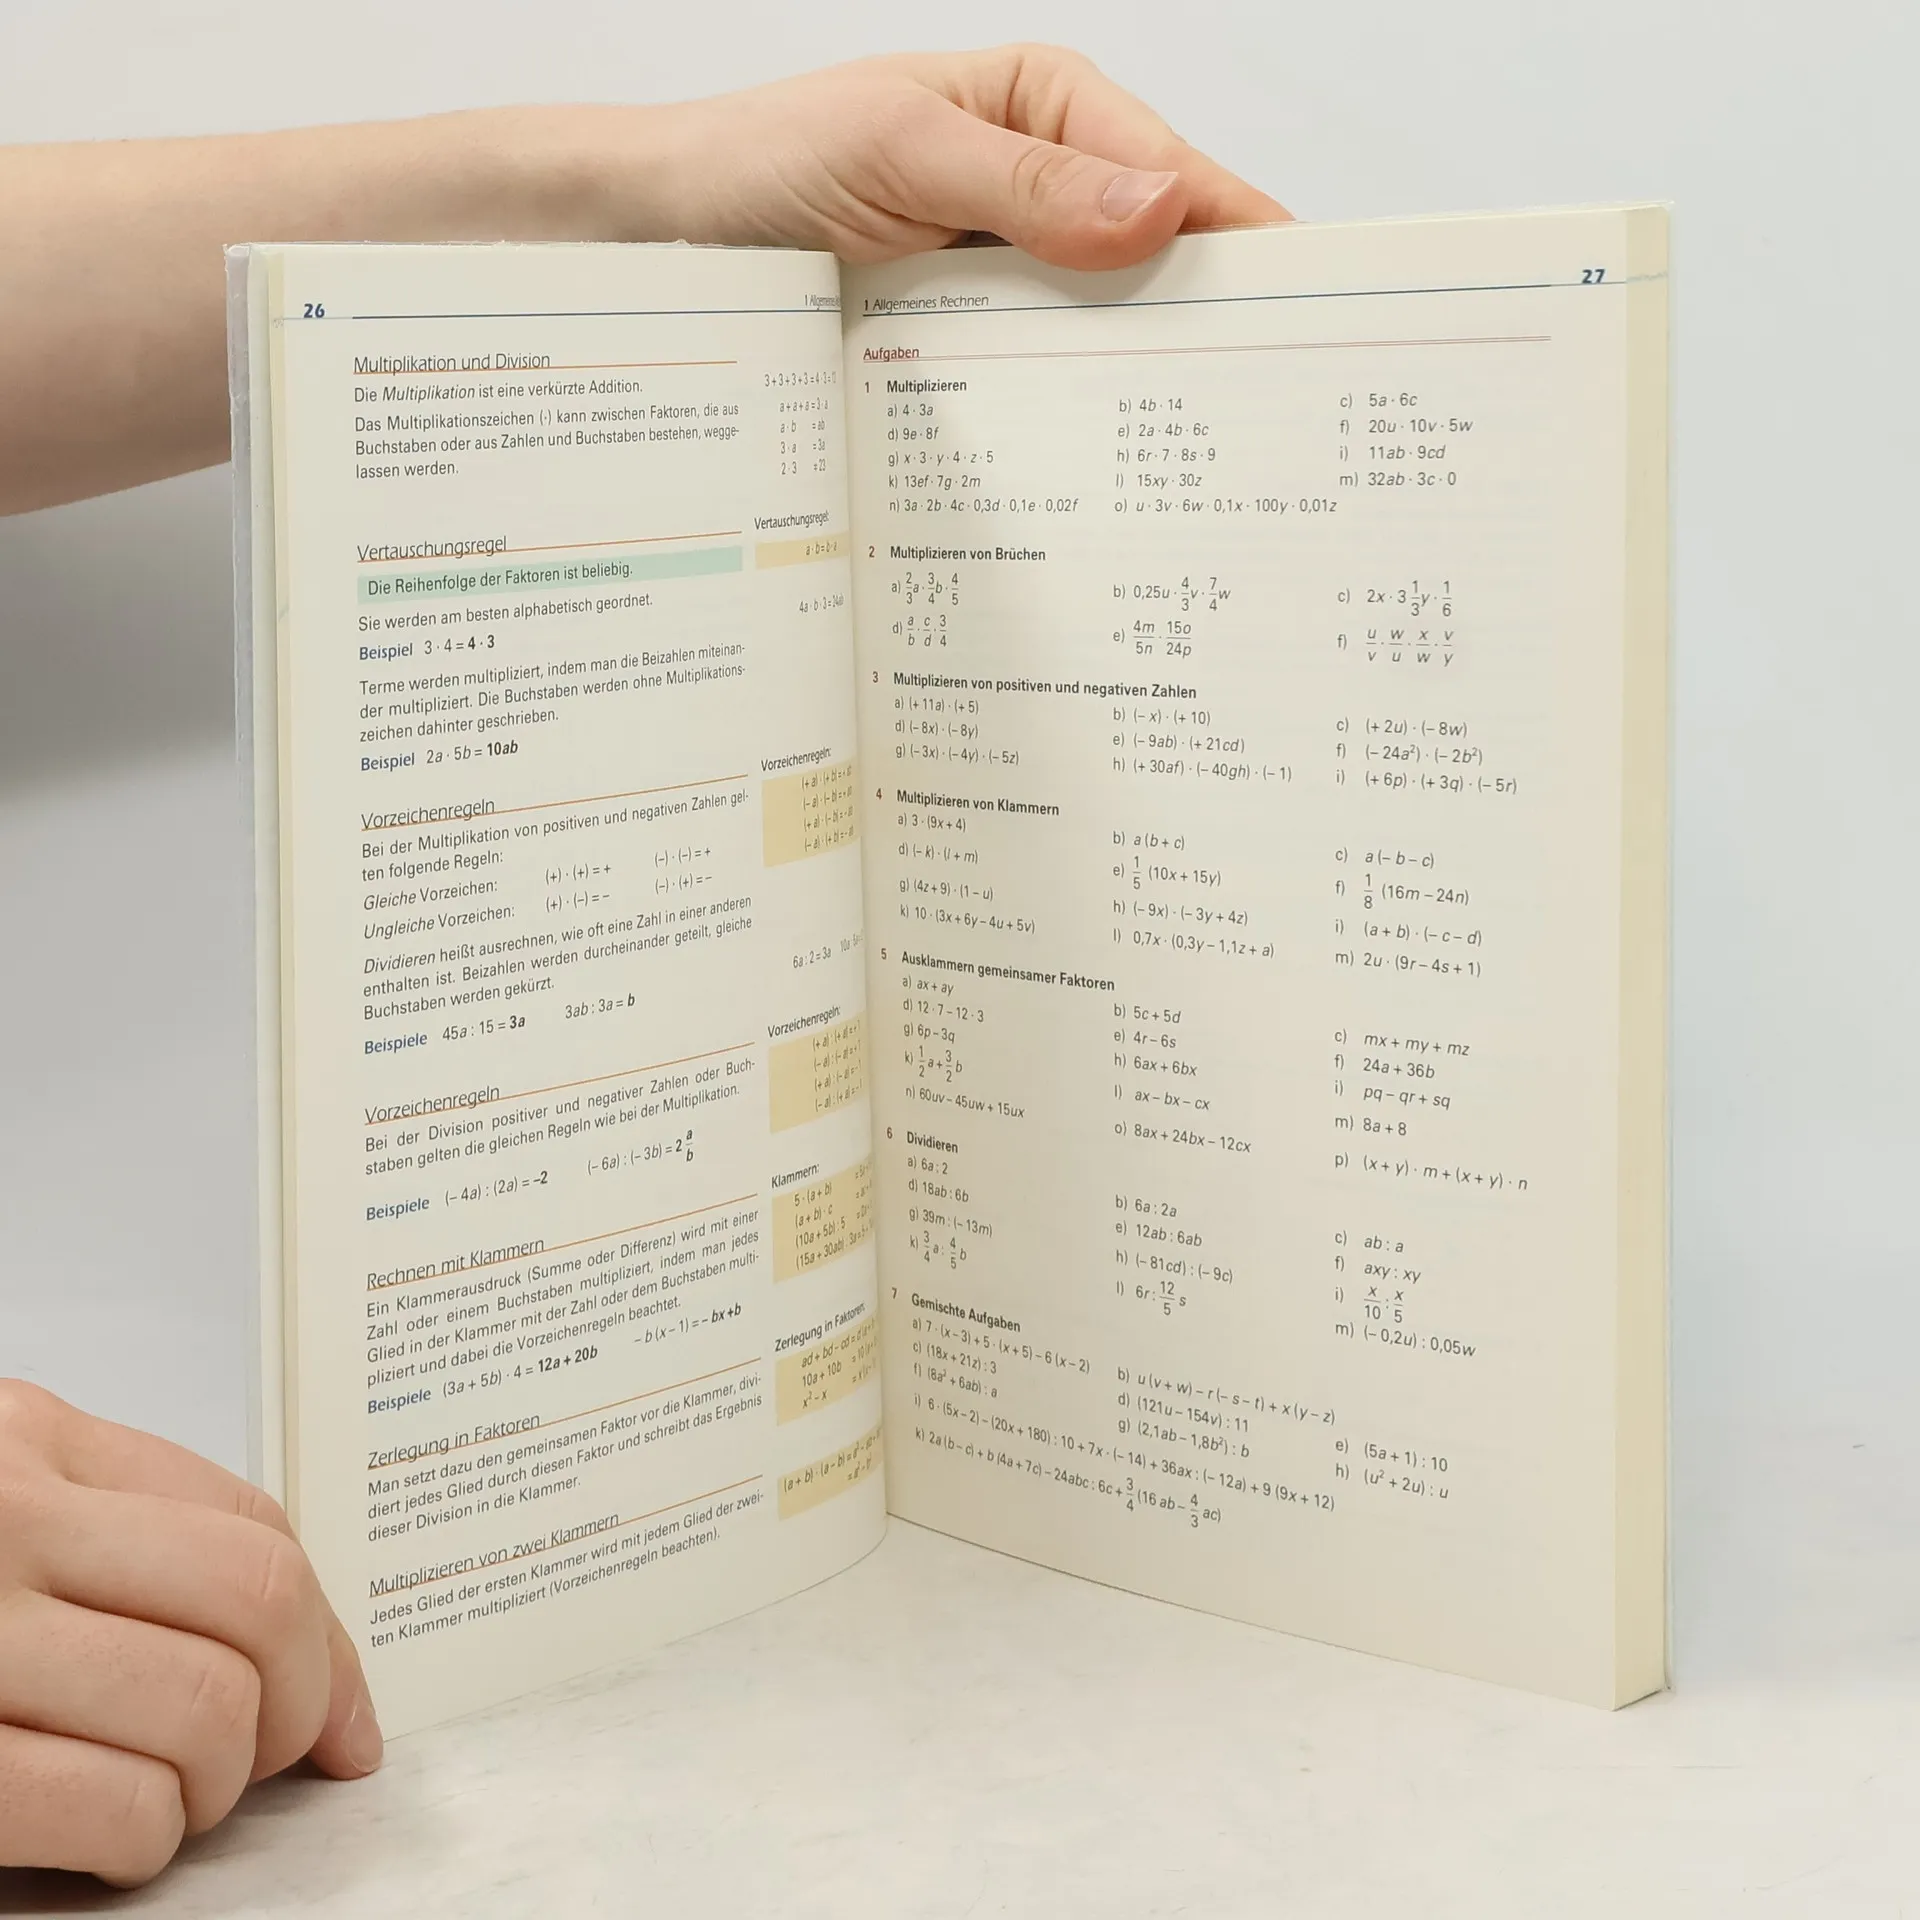 26
Multiplikation und Division
Die Multiplikation ist eine verkürzte Addition.
Das Multiplikationszeichen (·) kann zwischen Faktoren, die aus
Buchstaben oder aus Zahlen und Buchstaben bestehen, wegge-
lassen werden.
3+3+3+3=4·3=
a+a+a=3·a
a·b =ab
3·a =3a
Vertauschungsregel
Die Reihenfolge der Faktoren ist beliebig.
Sie werden am besten alphabetisch geordnet.
Beispiel 3 · 4 = 4 · 3
Terme werden multipliziert, indem man die Beizahlen miteinan-
der multipliziert. Die Buchstaben werden ohne Multiplikations-
zeichen dahinter geschrieben.
Beispiel 2a · 5b = 10ab
Vertauschungsregel:
a·b=b·a
4a·b·3=24ab
Vorzeichenregeln
Bei der Multiplikation von positiven und negativen Zahlen gel-
ten folgende Regeln:
Gleiche Vorzeichen: (+) · (+) = + (–) · (–) = +
Ungleiche Vorzeichen: (+) · (–) = – (–) · (+) = –
Dividieren heißt ausrechnen, wie oft eine Zahl in einer anderen
enthalten ist. Beizahlen werden durcheinander geteilt, gleiche
Buchstaben werden gekürzt.
Beispiele 45a : 15 = 3a 3ab : 3a = b
Vorzeichenregeln:
(+a)·(+b)=+ab
(–a)·(–b)=+ab
(+a)·(–b)=–ab
(–a)·(+b)=–ab
6a:2=3a
Vorzeichenregeln
Bei der Division positiver und negativer Zahlen oder Buch-
staben gelten die gleichen Regeln wie bei der Multiplikation.
Beispiele (– 4a) : (2a) = –2 (– 6a) : (– 3b) = 2 a/b
Vorzeichenregeln:
Rechnen mit Klammern
Ein Klammerausdruck (Summe oder Differenz) wird mit einer
Zahl oder einem Buchstaben multipliziert, indem man jedes
Glied in der Klammer mit der Zahl oder dem Buchstaben multi-
pliziert und dabei die Vorzeichenregeln beachtet.
Beispiele (3a + 5b) · 4 = 12a + 20b – b (x – 1) = – bx +b
Klammern:
5·(a+b)
(a+b)·c
(10a+5b):5
(15a+30ab):3a
Zerlegung in Faktoren
Man setzt dazu den gemeinsamen Faktor vor die Klammer, divi-
diert jedes Glied durch diesen Faktor und schreibt das Ergebnis
dieser Division in die Klammer.
Zerlegung in Faktoren:
ad+bd–cd
10a+10b
x²–x
Multiplizieren von zwei Klammern
Jedes Glied der ersten Klammer wird mit jedem Glied der zwei-
ten Klammer multipliziert (Vorzeichenregeln beachten).
(a+b)·(a–b)
1 Allgemeines Rechnen 27
Aufgaben
1 Multiplizieren
a) 4 · 3a b) 4b · 14 c) 5a · 6c
d) 9e · 8f e) 2a · 4b · 6c f) 20u · 10v · 5w
g) x · 3 · y · 4 · z · 5 h) 6r · 7 · 8s · 9 i) 11ab · 9cd
k) 13ef · 7g · 2m l) 15xy · 30z m) 32ab · 3c · 0
n) 3a · 2b · 4c · 0,3d · 0,1e · 0,02f o) u · 3v · 6w · 0,1x · 100y · 0,01z
2 Multiplizieren von Brüchen
a) 2/3 a · 3/4 b · 4/5 b) 0,25u · 4/3 v · 7/4 w c) 2x · 3 1/3 y · 1/6
d) a/b · c/d · 3/4 e) 4m/5n · 15o/24p f) u/v · w/u · x/w · v/y
3 Multiplizieren von positiven und negativen Zahlen
a) (+ 11a) · (+ 5) b) (– x) · (+ 10) c) (+ 2u) · (– 8w)
d) (– 8x) · (– 8y) e) (– 9ab) · (+ 21cd) f) (– 24a²) · (– 2b²)
g) (– 3x) · (– 4y) · (– 5z) h) (+ 30af) · (– 40gh) · (– 1) i) (+ 6p) · (+ 3q) · (– 5r)
4 Multiplizieren von Klammern
a) 3 · (9x + 4) b) a (b + c) c) a (– b – c)
d) (– k) · (l + m) e) 1/5 (10x + 15y) f) 1/8 (16m – 24n)
g) (4z + 9) · (1 – u) h) (– 9x) · (– 3y + 4z) i) (a + b) · (– c – d)
k) 10 · (3x + 6y – 4u + 5v) l) 0,7x · (0,3y – 1,1z + a) m) 2u · (9r – 4s + 1)
5 Ausklammern gemeinsamer Faktoren
a) ax + ay b) 5c + 5d c) mx + my + mz
d) 12 · 7 – 12 · 3 e) 4r – 6s f) 24a + 36b
g) 6p – 3q h) 6ax + 6bx i) pq – qr + sq
k) 1/2 a + 3/2 b l) ax – bx – cx m) 8a + 8
n) 60uv – 45uw + 15ux o) 8ax + 24bx – 12cx p) (x + y) · m + (x + y) · n
6 Dividieren
a) 6a : 2 b) 6a : 2a c) ab : a
d) 18ab : 6b e) 12ab : 6ab f) axy : xy
g) 39m : (– 13m) h) (– 81cd) : (– 9c) i) x/10 : x/5
k) 3/4 a : 4/5 b l) 6r : 12/5 s m) (– 0,2u) : 0,05w
7 Gemischte Aufgaben
a) 7 · (x – 3) + 5 · (x + 5) – 6 (x – 2) b) u (v + w) – r (– s – t) + x (y – z)
c) (18x + 21z) : 3 d) (121u – 154v) : 11 e) (5a + 1) : 10
f) (8a² + 6ab) : a g) (2,1ab – 1,8b²) : b h) (u² + 2u) : u
i) 6 · (5x – 2) – (20x + 180) : 10 + 7x · (– 14) + 36ax : (– 12a) + 9 (9x + 12)
k) 2a (b – c) + b (4a + 7c) – 24abc : 6c + 3/4 (16 ab – 4/3 ac)